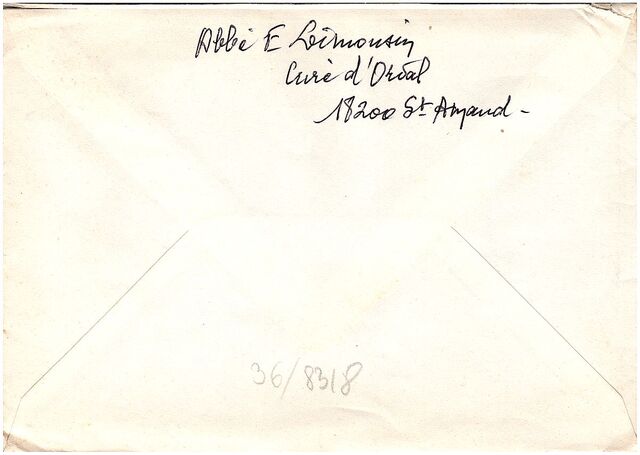 Abbé E Limousin
Curé d'Orval
18200 St Amand -
36/8318